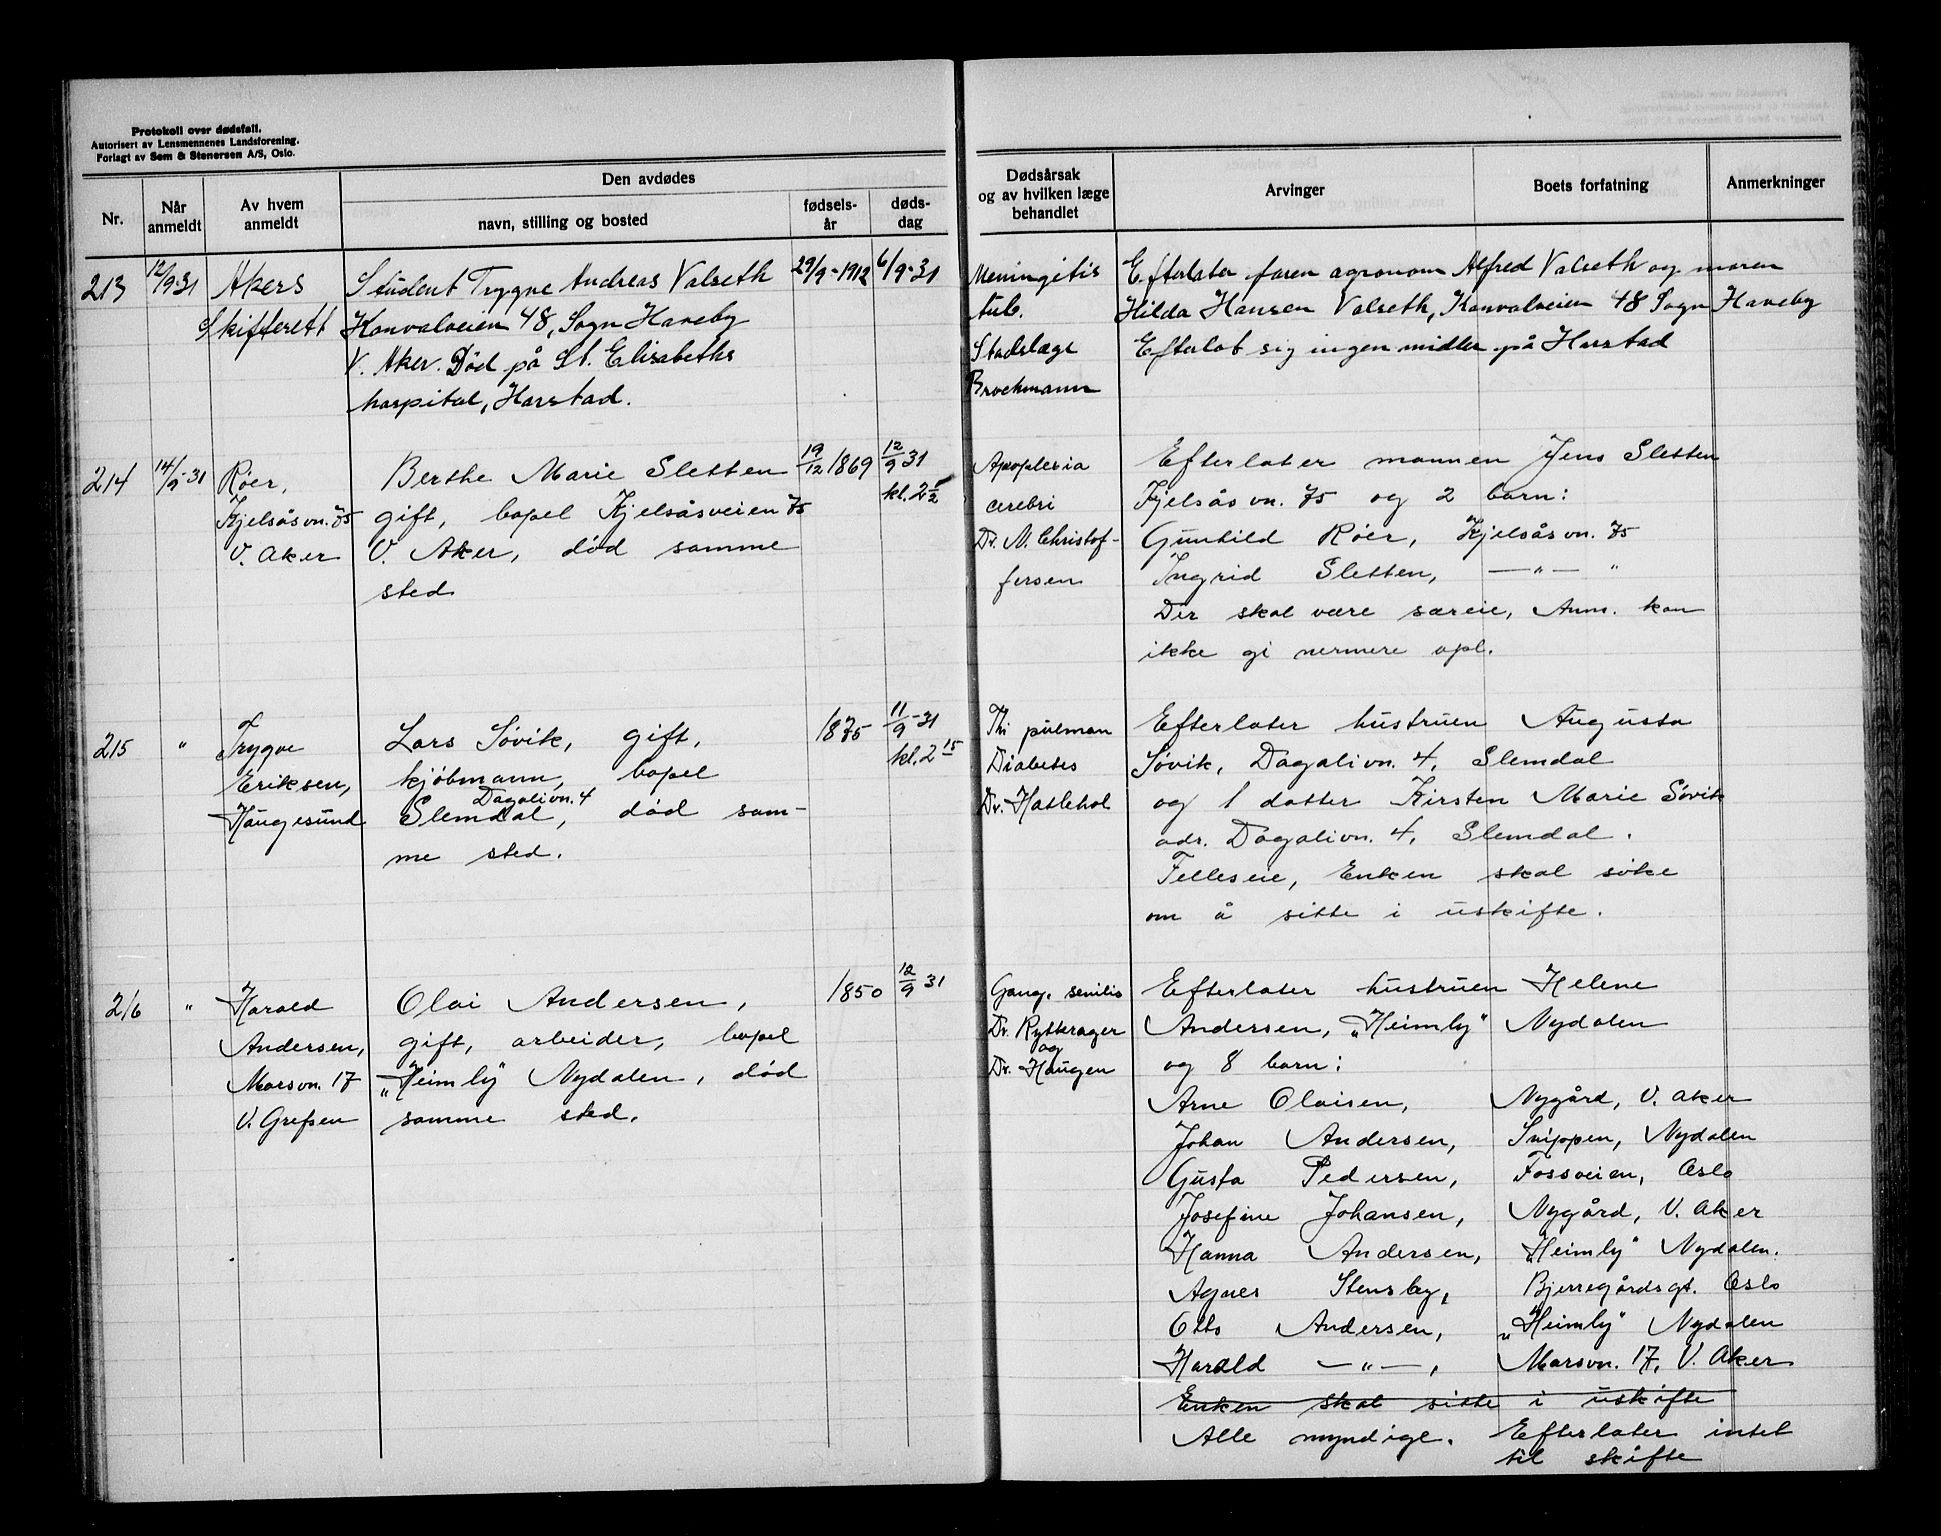 Protokoll over dødsfall.
Autorisert av Lensmennenes Landsforening.
Forlagt av Sem & Stenersen A/S, Oslo.
Nr.
Når anmeldt
Av hvem anmeldt
Den avdødes
navn, stilling og bosted
fødsels-år
døds-dag
Dødsårsak
og av hvilken læge
behandlet
Arvinger
Boets forfatning
Anmerkninger
213 12/9-31 Akers Student Trygve Andreas Valseth 29/9-1912 6/9-31
Skifterett Konvalveien 48, Sogn Haveby
V. Aker. Død på St. Elisabeths
hospital, Harstad.
Meningitis
tub.
Stadslæge
Brochmann
Efterlater faren agronom Alfred Valseth og moren
Hilda Hansen Valseth, Konvalveien 48 Sogn Haveby
Efterlot sig ingen midler på Harstad
214 14/9-31 Røer, Berthe Marie Sletten 19/12 1869 12/9 31
Kjelsåsvn. 75 gift, bopel Kjelsåsveien 75 kl. 2 1/2
V. Aker V. Aker, død samme
sted
Apoplexia
cerebri
Dr. N. Christof-
fersen
Efterlater mannen Jens Sletten
Kjelsåsvn. 75 og 2 barn:
Gunhild Røer, Kjelsåsvn. 75
Ingrid Sletten, —"— "
Der skal være særeie, Anm. kan
ikke gi nermere opl.
215 " Trygve Lars Søvik, gift, 1875 11/9-31
Eriksen, kjøbmann, bopel kl. 2 15
Dagalivn. 4
Haugesund Slemdal, død sam-
me sted.
Tb. pulmon
Diabetes
Dr. Hatlehol
Efterlater hustruen Augusta
Søvik, Dagalivn. 4, Slemdal
og 1 datter Kirsten Marie Søvik
adr. Dagalivn. 4, Slemdal.
Felleseie, Enken skal søke
om å sitte i uskifte.
216 " Harald Olai Andersen, 1850 12/9 31
Andersen, gift, arbeider, bopel
Marsvn. 17 „Heimly" Nydalen, død
V. Grefsen samme sted.
Gang. senilis
Dr. Rytterager
og
Dr. Haugen
Efterlater hustruen Helene
Andersen, „Heimly" Nydalen
og 8 barn:
Arne Olaisen, Nygård, V. Aker
Johan Andersen, Snippen, Nydalen
Gusta Pedersen, Fossveien, Oslo
Josefine Johansen, Nygård, V. Aker
Hanna Andersen, „Heimly" Nydalen.
Agnes Stensby, Bjerregårdsgt. Oslo
Otto Andersen, „Heimly" Nydalen
Harald —"—, Marsvn. 17, V. Aker
Enken skal sitte i uskifte
Alle myndige. Efterlater intet
til skifte